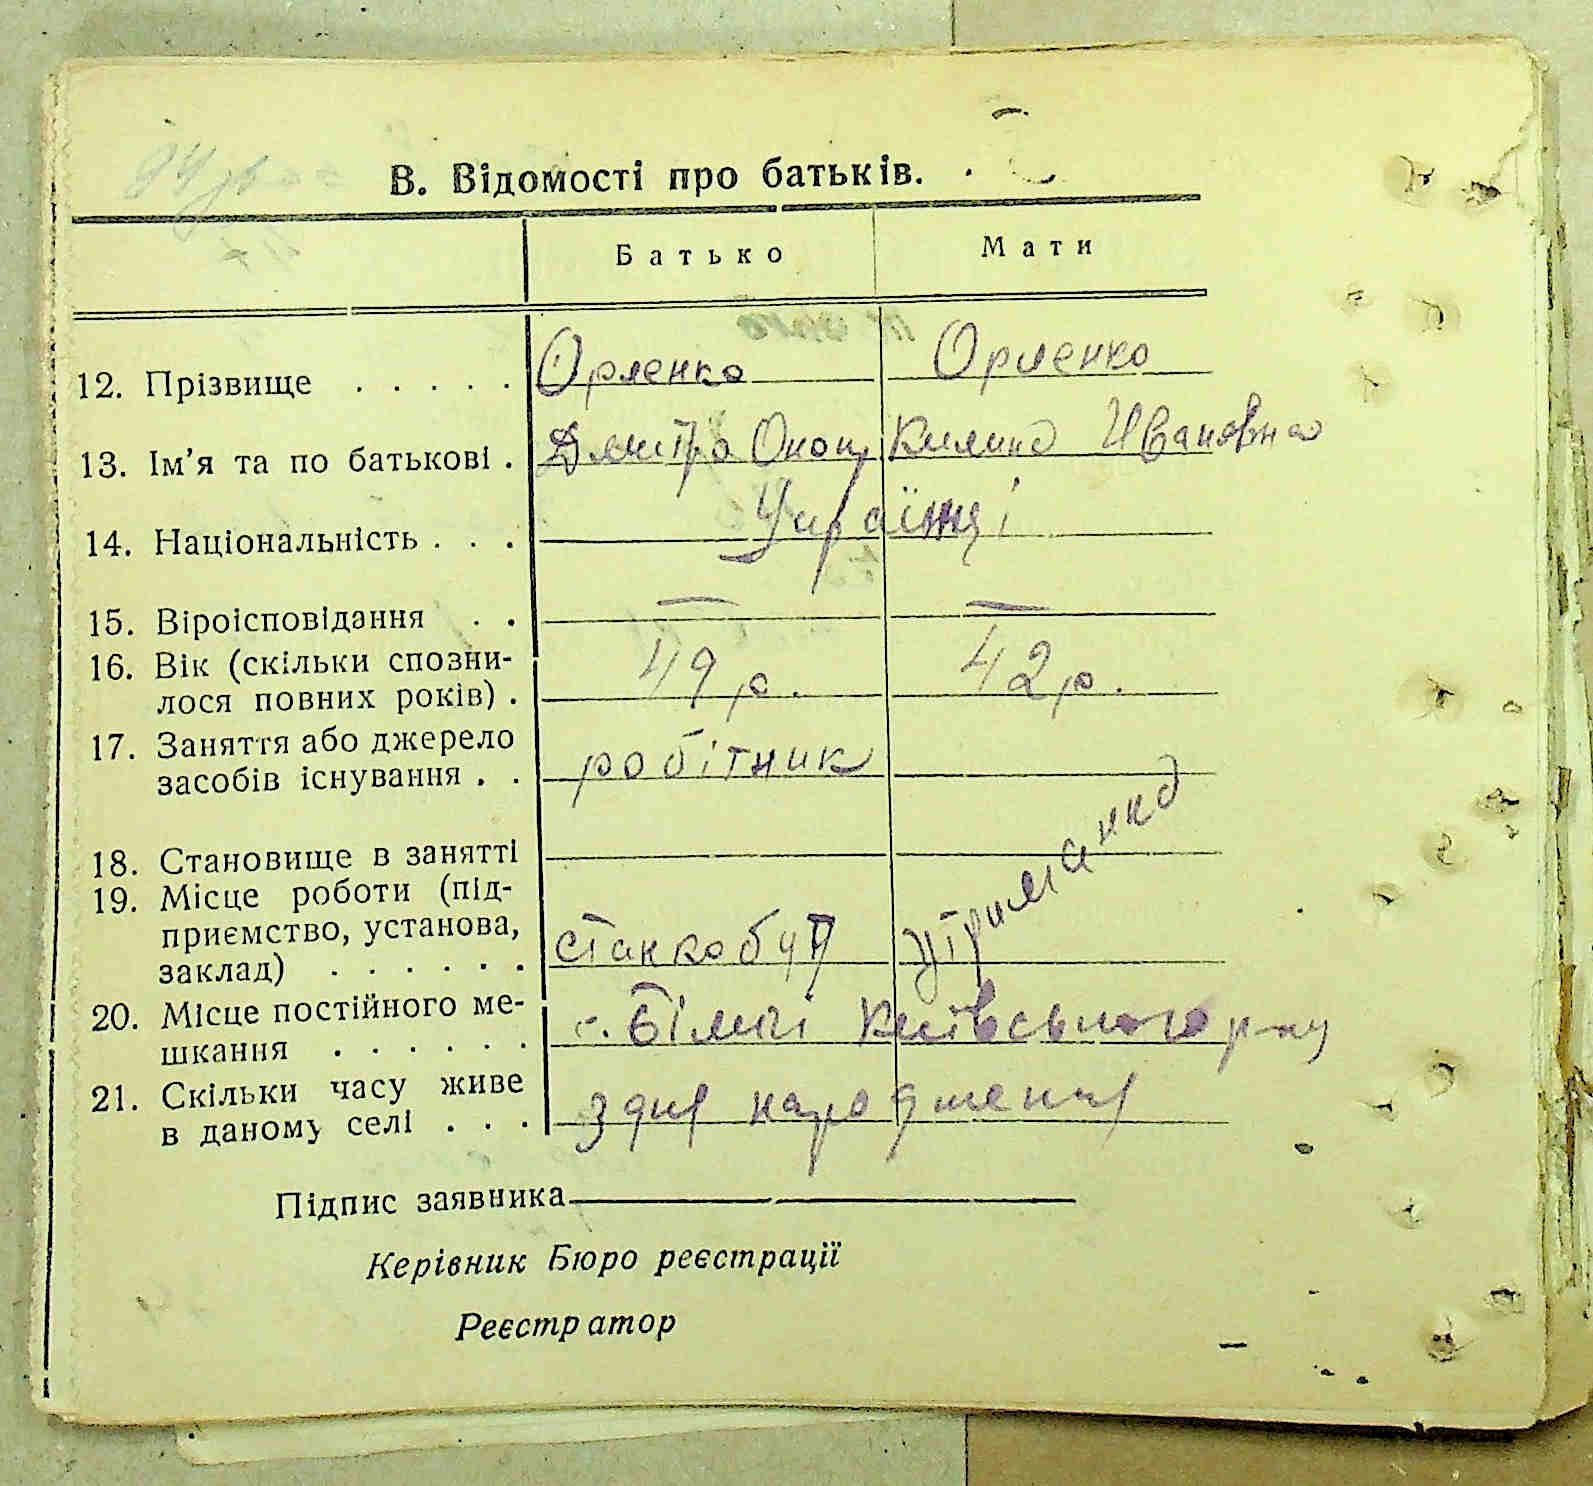 В. Відомості про батьків.
Батько Мати
12. Прізвище . . . . . Орленко Орленко
13. Ім’я та по батькові . Дмитро Оноп Килина Ивановна
14. Національність . . . Українці
15. Віроісповідання . . — —
16. Вік (скільки спозни-
лося повних років) . 49 р. 42 р.
17. Заняття або джерело
засобів існування . . робітник утриманка
18. Становище в занятті
19. Місце роботи (під-
приємство, установа,
заклад) . . . . . . станкобуд
20. Місце постійного ме-
шкання . . . . . . с. Біличі Київського р-ну
21. Скільки часу живе
в даному селі . . . з дня народження
Підпис заявника
Керівник Бюро реєстрації
Реєстратор